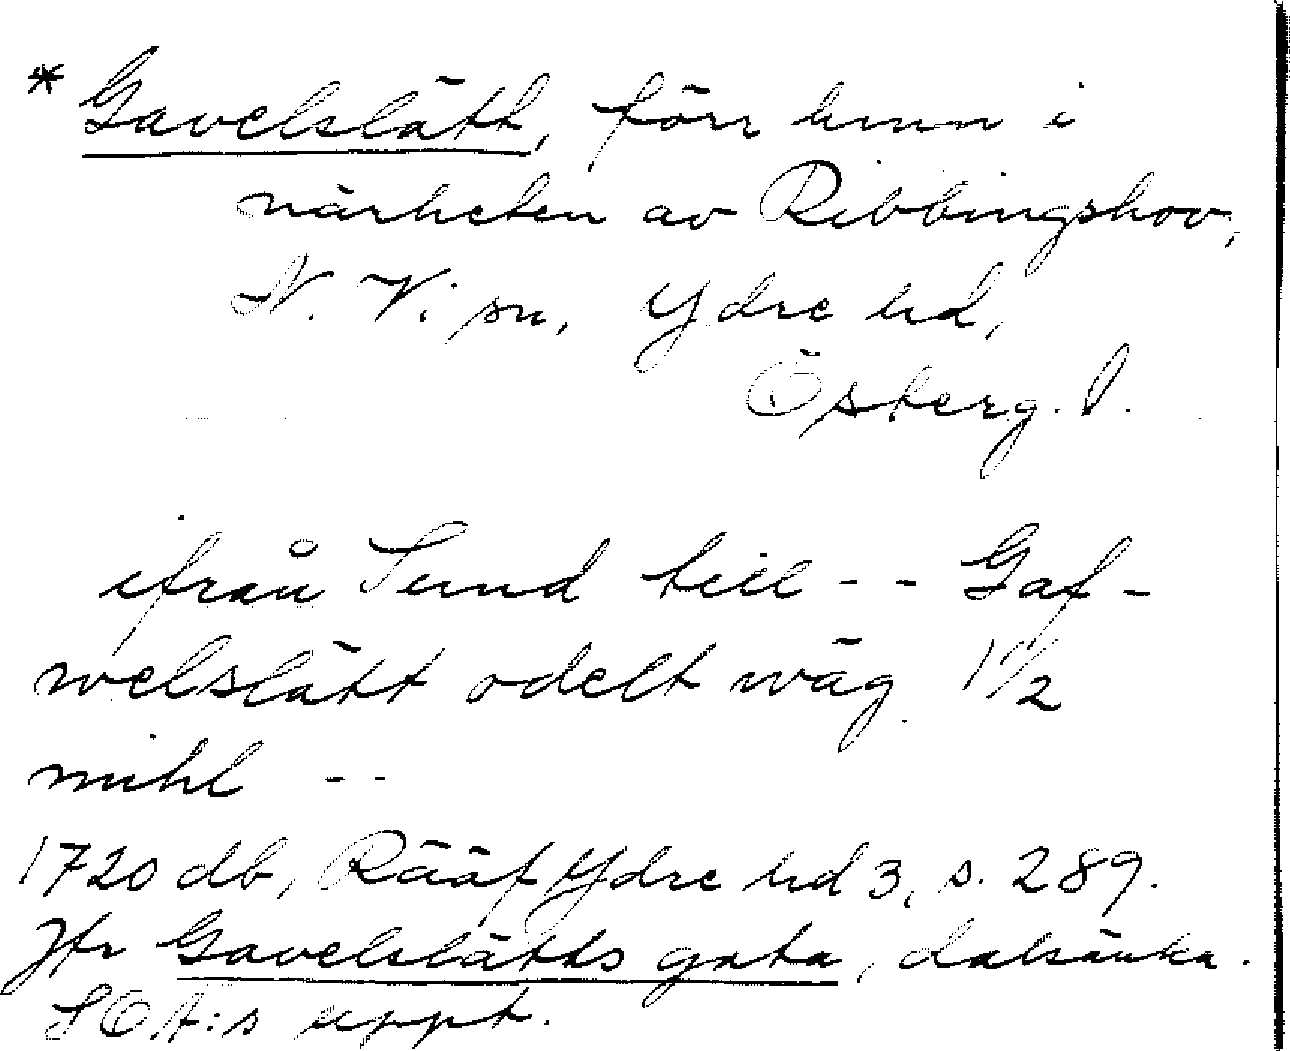 * Gavelslätt, förr hmn i
närheten av Ribbingshov,
N. Vi sn, Ydre hd,
Österg. l.
ifrån Sund till -- Gaf-
welslätt odelt wäg 1 1/2
mihl --
1720 db, Rääf Ydre hd 3, s. 289.
Jfr Gavelslätts gata, dalsänka.
SOA:s uppt.